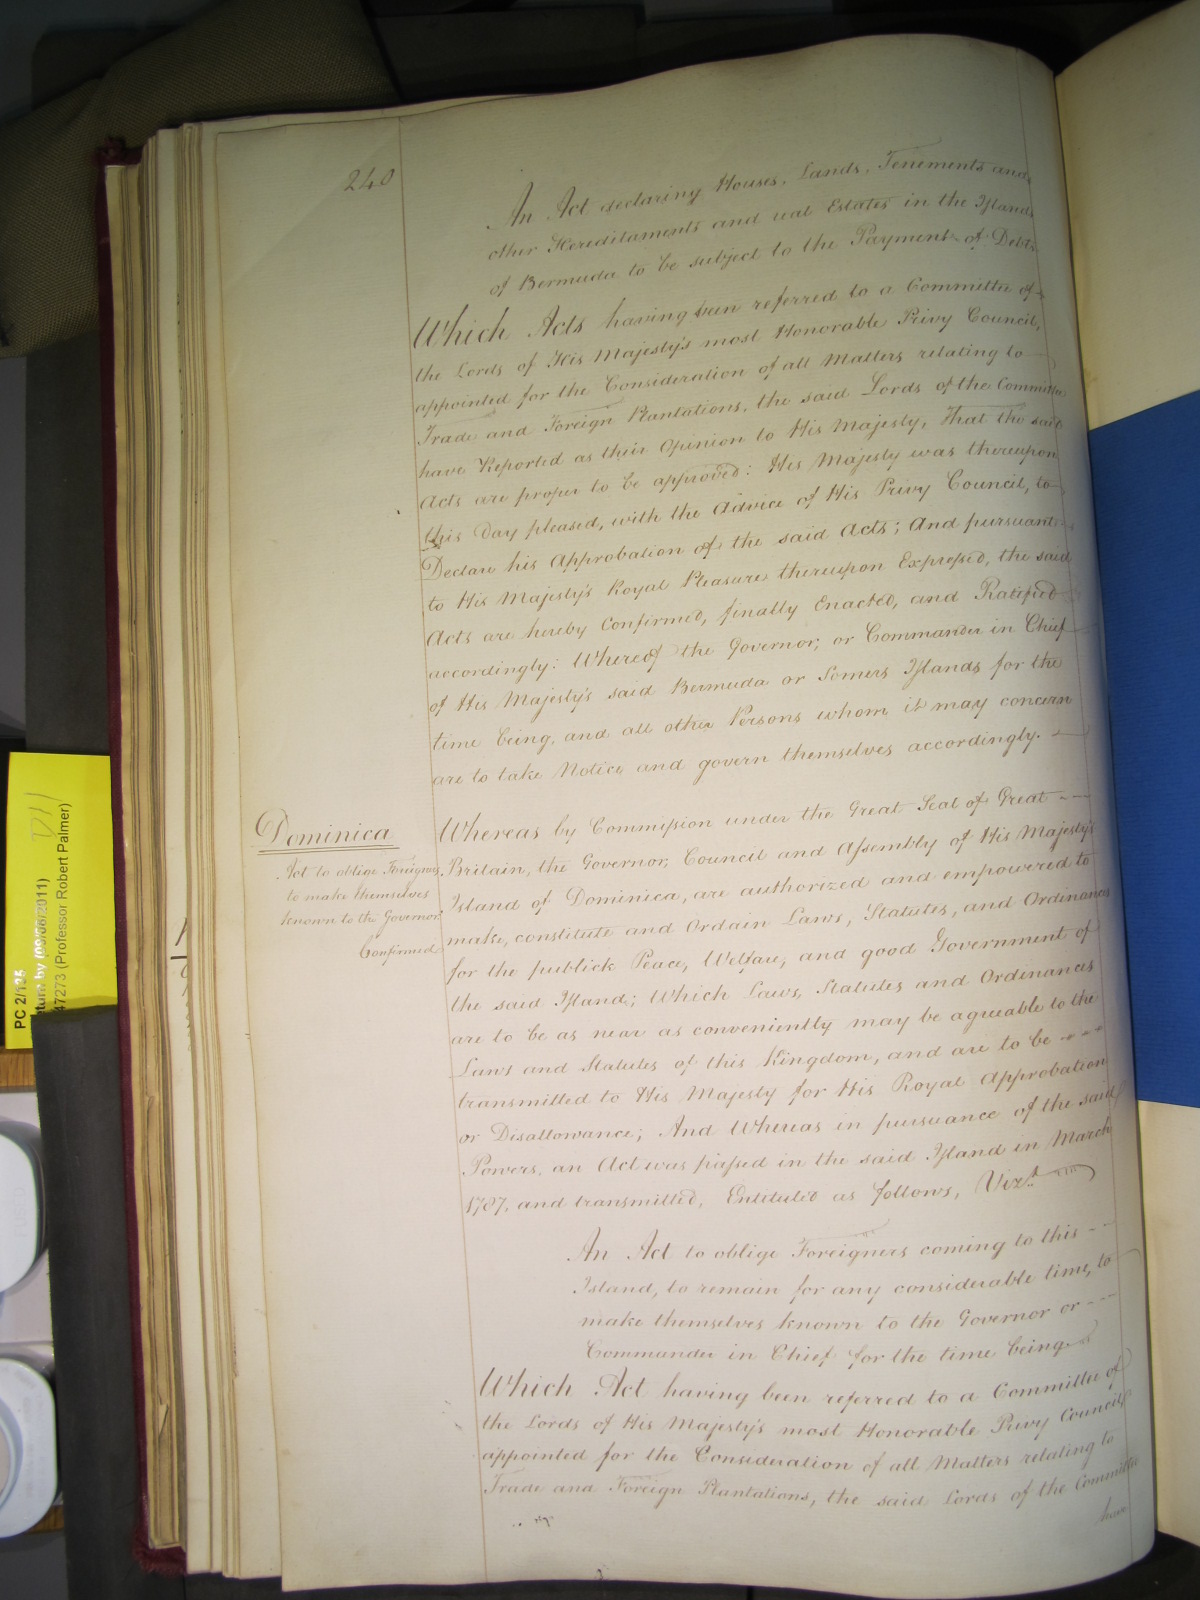 240
An Act declaring Houses, Lands, Tenements and
other Hereditaments and real Estates in the Islands
of Bermuda to be subject to the Payment of Debts
Which Acts having been referred to a Committee of
the Lords of His Majesty's most Honorable Privy Council,
appointed for the Consideration of all Matters relating to
Trade and Foreign Plantations, the said Lords of the Committee
have Reported as their Opinion to His Majesty, That the said
Acts are proper to be approved: His Majesty was thereupon
this Day pleased, with the Advice of His Privy Council, to
Declare his Approbation of the said Acts; And pursuant
to His Majesty's Royal Pleasure thereupon Expressed, the said
Acts are hereby Confirmed, finally Enacted, and Ratified
accordingly: Whereof the Governor, or Commander in Chief
of His Majesty's said Bermuda or Somers Islands for the
time being, and all other Persons whom it may concern
are to take Notice and govern themselves accordingly.
Dominica
Act to oblige Foreigners
to make themselves
known to the Governor.
Confirmed
Whereas by Commission under the Great Seal of Great
Britain, the Governor, Council and Assembly of His Majesty's
Island of Dominica, are authorized and empowered to
make, constitute and Ordain Laws, Statutes, and Ordinances
for the publick Peace, Welfare, and good Government of
the said Island; Which Laws, Statutes and Ordinances
are to be as near as conveniently may be agreeable to the
Laws and Statutes of this Kingdom, and are to be
transmitted to His Majesty for His Royal Approbation
or Disallowance; And Whereas in pursuance of the said
Powers, an Act was passed in the said Island in March
1787, and transmitted, Entituled as follows, Vizt.
An Act to oblige Foreigners coming to this
Island, to remain for any considerable time, to
make themselves known to the Governor or
Commander in Chief for the time being
Which Act having been referred to a Committee of
the Lords of His Majesty's most Honorable Privy Council,
appointed for the Consideration of all Matters relating to
Trade and Foreign Plantations, the said Lords of the Committee
have
PC 2/135
by (09/08/2011)
47273 (Professor Robert Palmer)